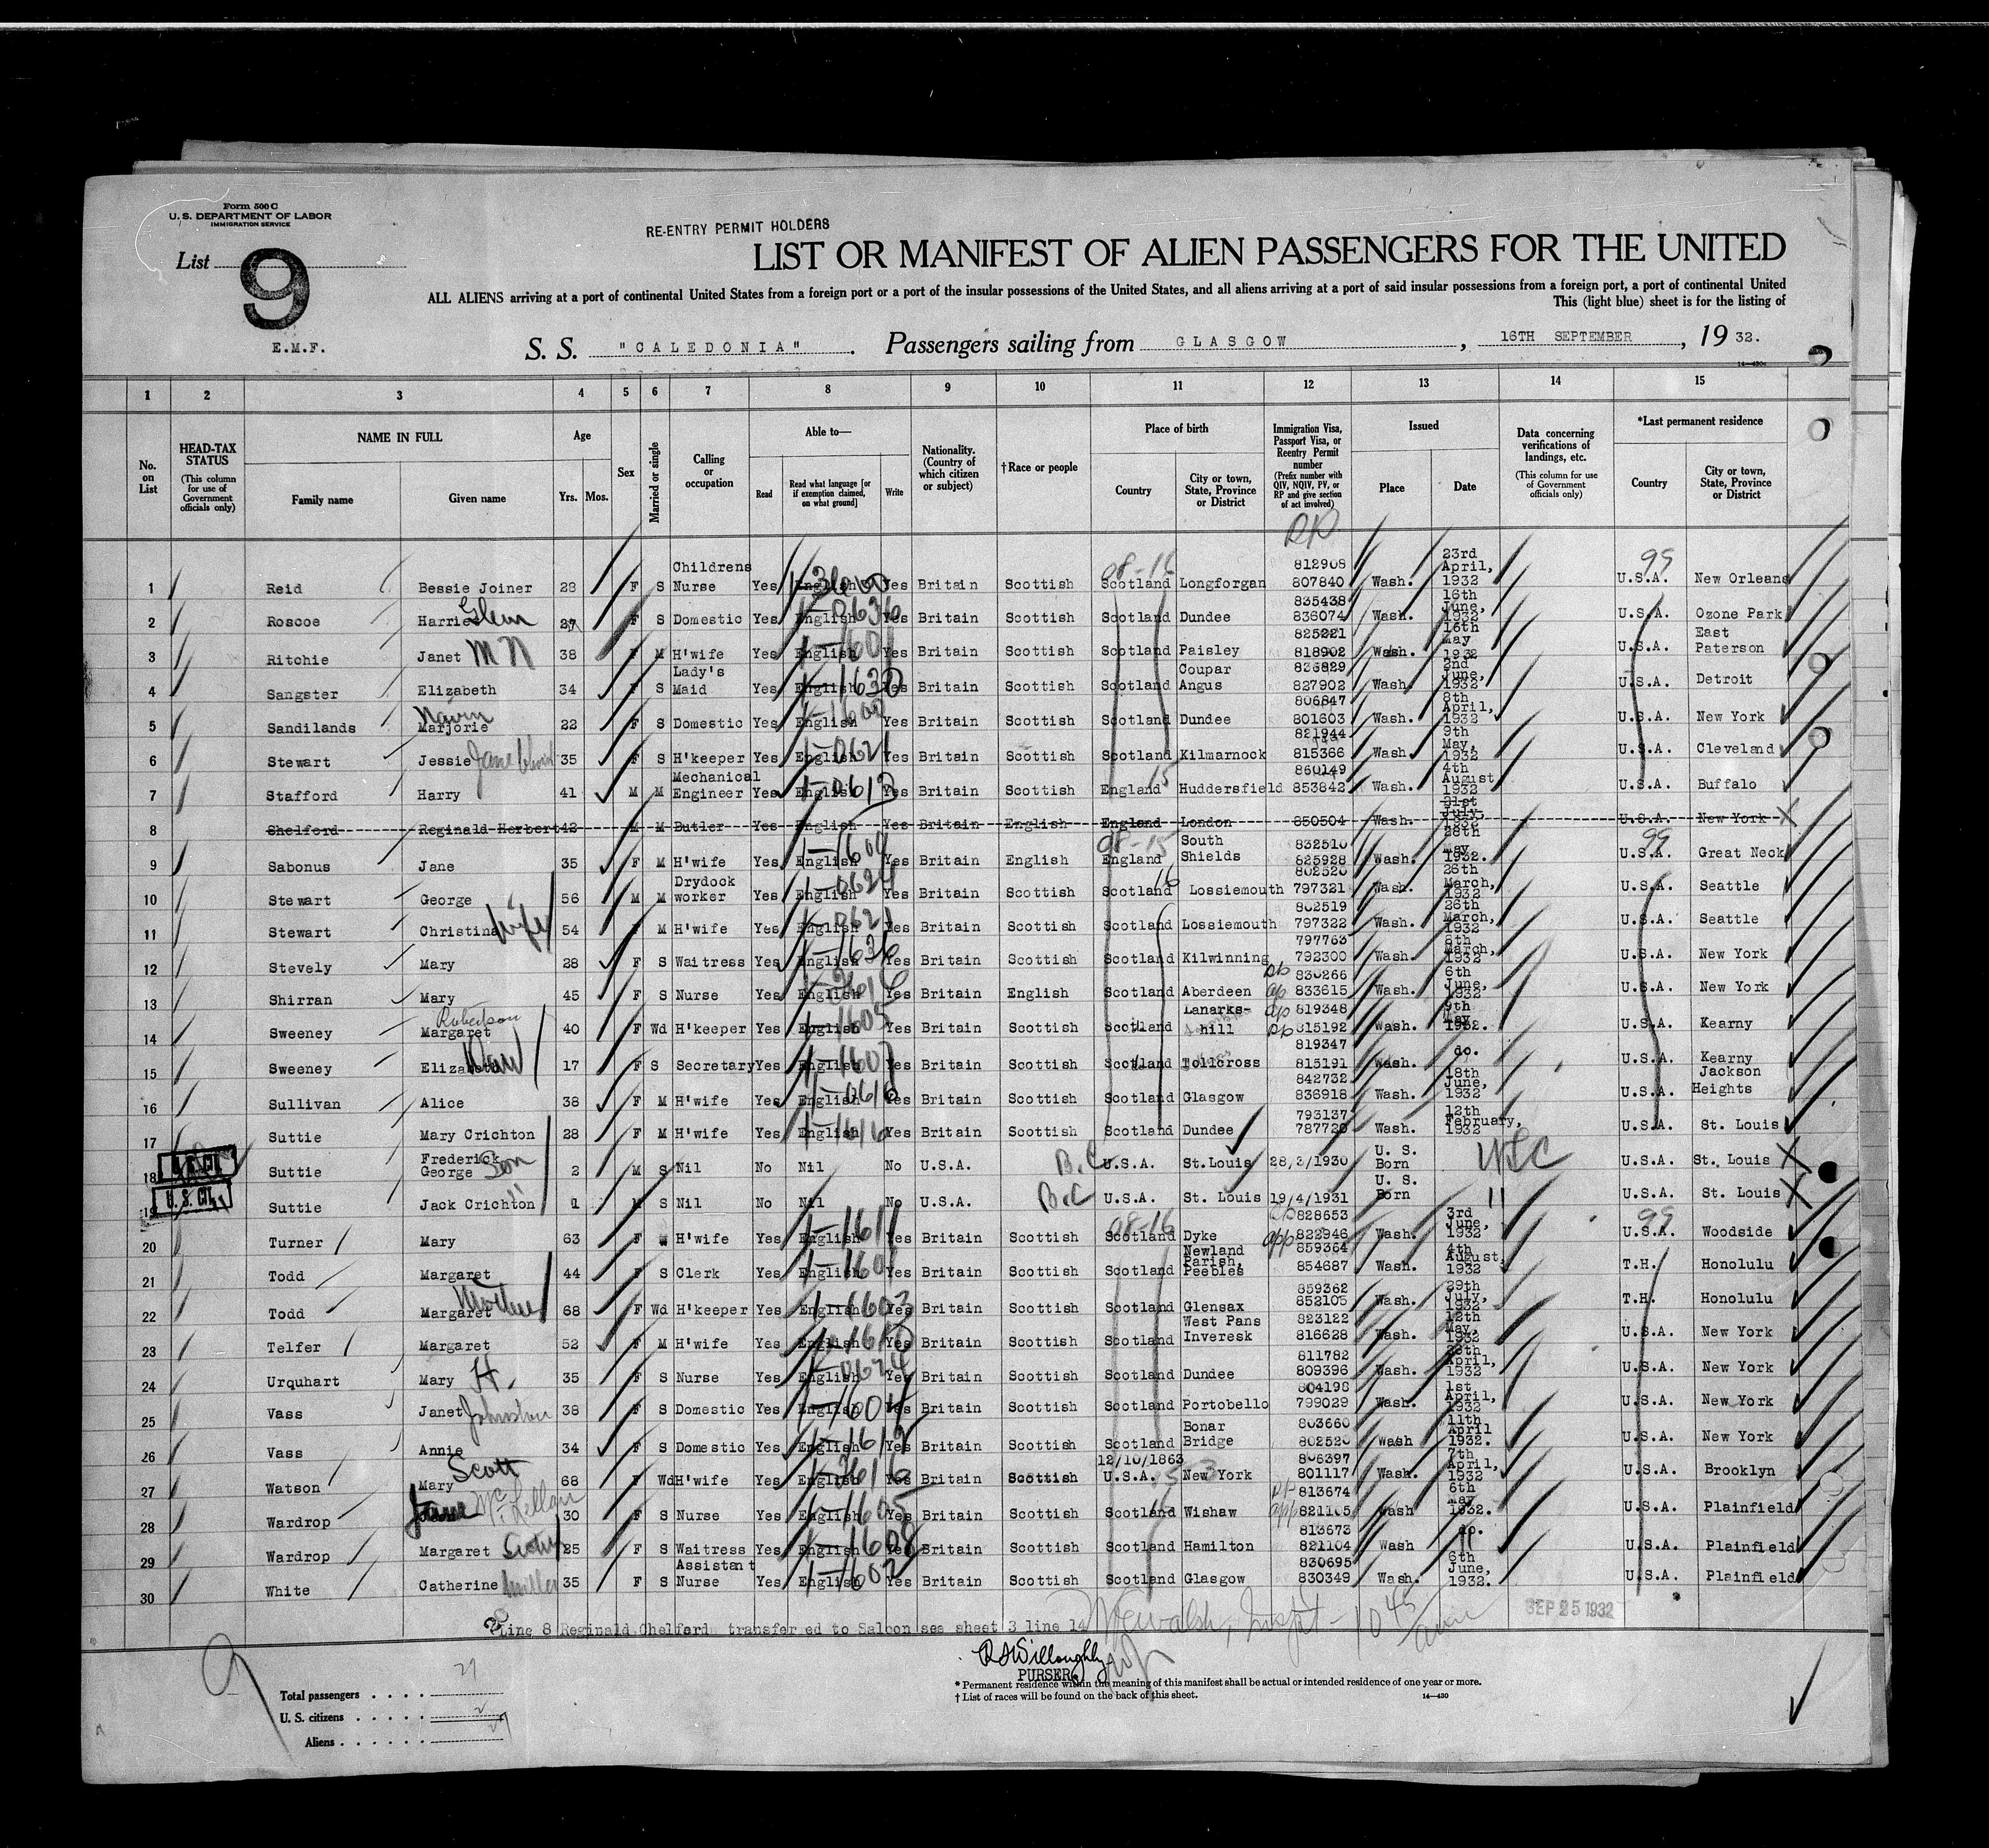 Form 500 C
U. S. DEPARTMENT OF LABOR
IMMIGRATION SERVICE
RE-ENTRY PERMIT HOLDERS
List 9
LIST OR MANIFEST OF ALIEN PASSENGERS FOR THE UNITED
ALL ALIENS arriving at a port of continental United States from a foreign port or a port of the insular possessions of the United States, and all aliens arriving at a port of said insular possessions from a foreign port, a port of continental United
This (light blue) sheet is for the listing of
E.M.F.
S. S. "CALEDONIA". Passengers sailing from GLASGOW, 16TH SEPTEMBER, 1932.
1 2 3 4 5 6 7 8 9 10 11 12 13 14 15
No. on List
HEAD-TAX STATUS (This column for use of Government officials only)
NAME IN FULL Family name Given name
Age Yrs. Mos.
Sex
Married or single
Calling or occupation
Able to— Read Read what language [or if exemption claimed, on what ground] Write
Nationality. (Country of which citizen or subject)
†Race or people
Place of birth Country City or town, State, Province or District
Immigration Visa, Passport Visa, or Reentry Permit number (Prefix number with QIV, NQIV, PV, or RP and give section of act involved)
Issued Place Date
Data concerning verifications of landings, etc. (This column for use of Government officials only)
*Last permanent residence Country City or town, State, Province or District
1 Reid Bessie Joiner 28 F S Childrens Nurse Yes English Yes Britain Scottish Scotland Longforgan 812908 807840 Wash. 23rd April, 1932 U.S.A. New Orleans
2 Roscoe Harrie Glen 27 F S Domestic Yes English Yes Britain Scottish Scotland Dundee 835438 836074 Wash. 16th June, 1932 U.S.A. Ozone Park
3 Ritchie Janet 38 F M H'wife Yes English Yes Britain Scottish Scotland Paisley 825221 818902 Wash. 16th May 1932 U.S.A. East Paterson
4 Sangster Elizabeth 34 F S Lady's Maid Yes English Yes Britain Scottish Scotland Coupar Angus 836829 827902 Wash. 2nd June, 1932 U.S.A. Detroit
5 Sandilands Marjorie 22 F S Domestic Yes English Yes Britain Scottish Scotland Dundee 806847 801603 Wash. 8th April, 1932 U.S.A. New York
6 Stewart Jessie Jane 35 F S H'keeper Yes English Yes Britain Scottish Scotland Kilmarnock 821944 815366 Wash. 9th May, 1932 U.S.A. Cleveland
7 Stafford Harry 41 M M Mechanical Engineer Yes English Yes Britain Scottish England Huddersfield 860149 853842 Wash. 4th August 1932 U.S.A. Buffalo
8 Shelford Reginald Herbert 42 M M Butler Yes English Yes Britain English England London 850504 Wash. 21st July, 1932 U.S.A. New York
9 Sabonus Jane 35 F M H'wife Yes English Yes Britain English England South Shields 832510 825928 Wash. 28th May 1932. U.S.A. Great Neck
10 Stewart George 56 M M Drydock worker Yes English Yes Britain Scottish Scotland Lossiemouth 802520 797321 Wash. 26th March, 1932 U.S.A. Seattle
11 Stewart Christina wife 54 F M H'wife Yes English Yes Britain Scottish Scotland Lossiemouth 802519 797322 Wash. 26th March, 1932 U.S.A. Seattle
12 Stevely Mary 28 F S Waitress Yes English Yes Britain Scottish Scotland Kilwinning 797763 792300 Wash. 8th March, 1932 U.S.A. New York
13 Shirran Mary 45 F S Nurse Yes English Yes Britain English Scotland Aberdeen 830266 833615 Wash. 6th June, 1932 U.S.A. New York
14 Sweeney Robertson Margaret 40 F Wd H'keeper Yes English Yes Britain Scottish Scotland Lanarks-hill 819348 815192 Wash. 9th May 1932. U.S.A. Kearny
15 Sweeney Elizabeth 17 F S Secretary Yes English Yes Britain Scottish Scotland Tollcross 819347 815191 Wash. do. U.S.A. Kearny
16 Sullivan Alice 38 F M H'wife Yes English Yes Britain Scottish Scotland Glasgow 842732 836918 Wash. 18th June, 1932 U.S.A. Jackson Heights
17 Suttie Mary Crichton 28 F M H'wife Yes English Yes Britain Scottish Scotland Dundee 793137 787720 Wash. 12th February, 1932 U.S.A. St. Louis
18 U.S. CIT. Suttie Frederick George Son 2 M S Nil No Nil No U.S.A. B.C U.S.A. St.Louis 28/3/1930 U. S. Born U.S.A. St. Louis
19 U.S. CIT. Suttie Jack Crichton " 1 M S Nil No Nil No U.S.A. B.C U.S.A. St. Louis 19/4/1931 U. S. Born " U.S.A. St. Louis
20 Turner Mary 63 F H'wife Yes English Yes Britain Scottish Scotland Dyke 828653 822946 Wash. 3rd June, 1932 U.S.A. Woodside
21 Todd Margaret 44 F S Clerk Yes English Yes Britain Scottish Scotland Newland Parish, Peebles 859364 854687 Wash. 4th August, 1932 T.H. Honolulu
22 Todd Margaret Mother 68 F Wd H'keeper Yes English Yes Britain Scottish Scotland Glensax 859362 852105 Wash. 29th July, 1932 T.H. Honolulu
23 Telfer Margaret 52 F M H'wife Yes English Yes Britain Scottish Scotland West Pans Inveresk 823122 816628 Wash. 12th May, 1932 U.S.A. New York
24 Urquhart Mary H. 35 F S Nurse Yes English Yes Britain Scottish Scotland Dundee 811782 809396 Wash. 28th April, 1932 U.S.A. New York
25 Vass Janet Johnston 38 F S Domestic Yes English Yes Britain Scottish Scotland Portobello 804198 799029 Wash. 1st April, 1932 U.S.A. New York
26 Vass Annie 34 F S Domestic Yes English Yes Britain Scottish Scotland Bonar Bridge 803660 802520 Wash 11th April 1932. U.S.A. New York
27 Watson Mary Scott 68 F Wd H'wife Yes English Yes Britain Scottish 12/10/1863 U.S.A. New York 806397 801117 Wash. 7th April, 1932 U.S.A. Brooklyn
28 Wardrop Jane McLellan 30 F S Nurse Yes English Yes Britain Scottish Scotland Wishaw 813674 821105 Wash 6th May 1932. U.S.A. Plainfield
29 Wardrop Margaret Sister 25 F S Waitress Yes English Yes Britain Scottish Scotland Hamilton 813673 821104 Wash do. U.S.A. Plainfield
30 White Catherine Miller 35 F S Assistant Nurse Yes English Yes Britain Scottish Scotland Glasgow 830695 830349 Wash. 6th June, 1932. U.S.A. Plainfield
Line 8 Reginald Chelford transferred to Saloon see sheet 3 line 14
SEP 25 1932
PURSER.
Total passengers
U. S. citizens 2
Aliens
* Permanent residence within the meaning of this manifest shall be actual or intended residence of one year or more.
† List of races will be found on the back of this sheet.
14—430